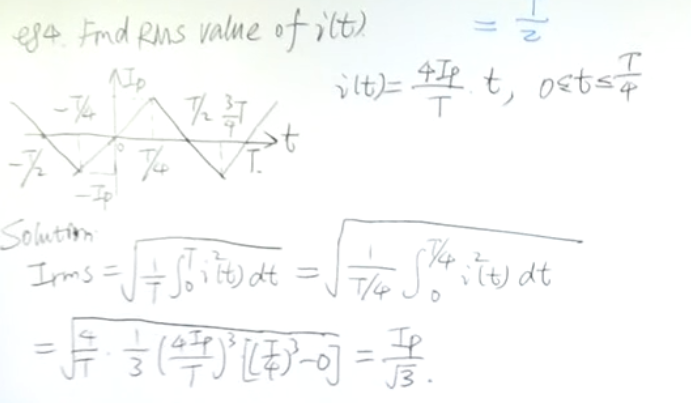 eg4. Find RMS value of i(t).
= 1/2
i(t) = \frac{4Ip}{T} \cdot t, 0 ≤ t ≤ \frac{T}{4}
Ip
-T/4 T/2 \frac{3}{4}T
0 t
-T/2 T/4 T.
-Ip
Solution
Irms = \sqrt{\frac{1}{T} \int_0^T i^2(t) dt} = \sqrt{\frac{1}{T/4} \int_0^{T/4} i^2(t) dt}
= \sqrt{\frac{4}{T} \cdot \frac{1}{3} (\frac{4Ip}{T})^3 [(\frac{T}{4})^3 - 0]} = \frac{Ip}{\sqrt{3}}.